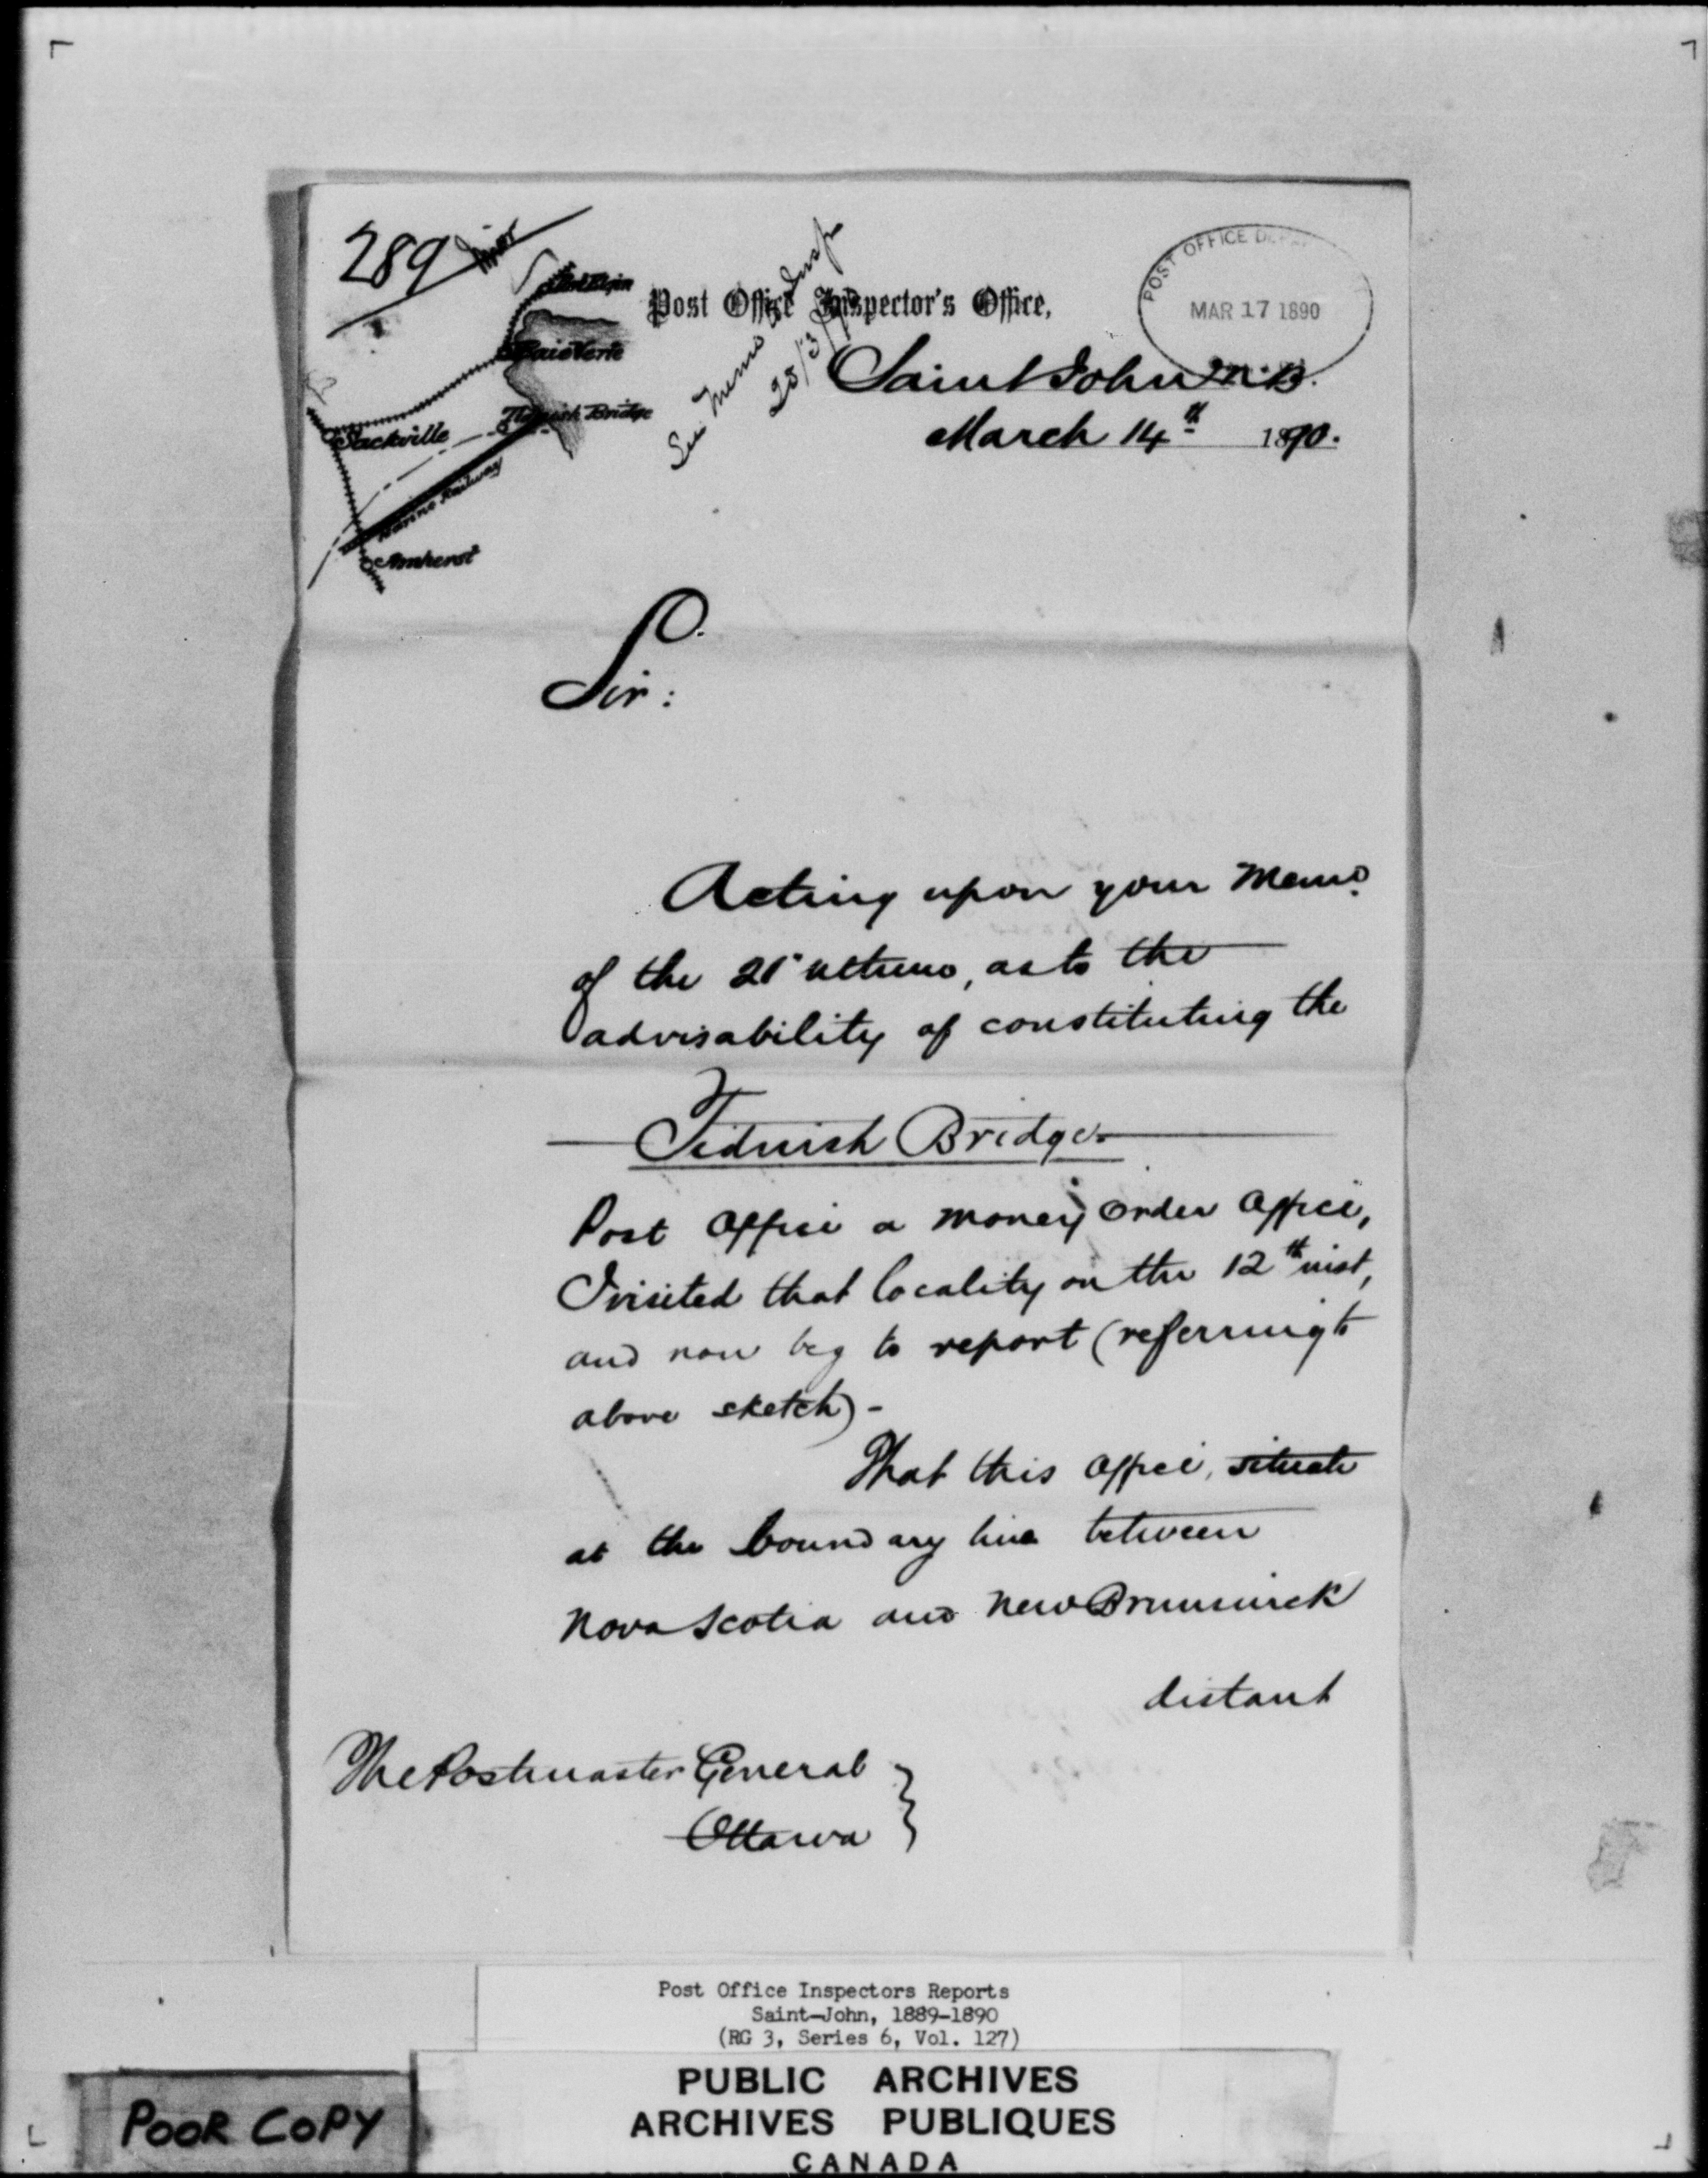 289
Port Elgin
Baie Verte
Tidnish Bridge
Sackville
Marine Railway
Amherst
See Memo to Insp
25/3/90
Post Office Inspector's Office,
POST OFFICE DEPA
MAR 17 1890
Saint John N.B.
March 14th 1890.
Sir:
Acting upon your Memo.
of the 21st ultimo, as to the
advisability of constituting the
Tidnish Bridge
Post Office a Money Order Office,
I visited that locality on the 12th inst,
and now beg to report (referring to
above sketch) -
That this Office, situate
at the boundary line between
Nova Scotia and New Brunswick
distant
The Postmaster General
Ottawa
Post Office Inspectors Reports
Saint-John, 1889-1890
(RG 3, Series 6, Vol. 127)
PUBLIC ARCHIVES
ARCHIVES PUBLIQUES
CANADA
POOR COPY